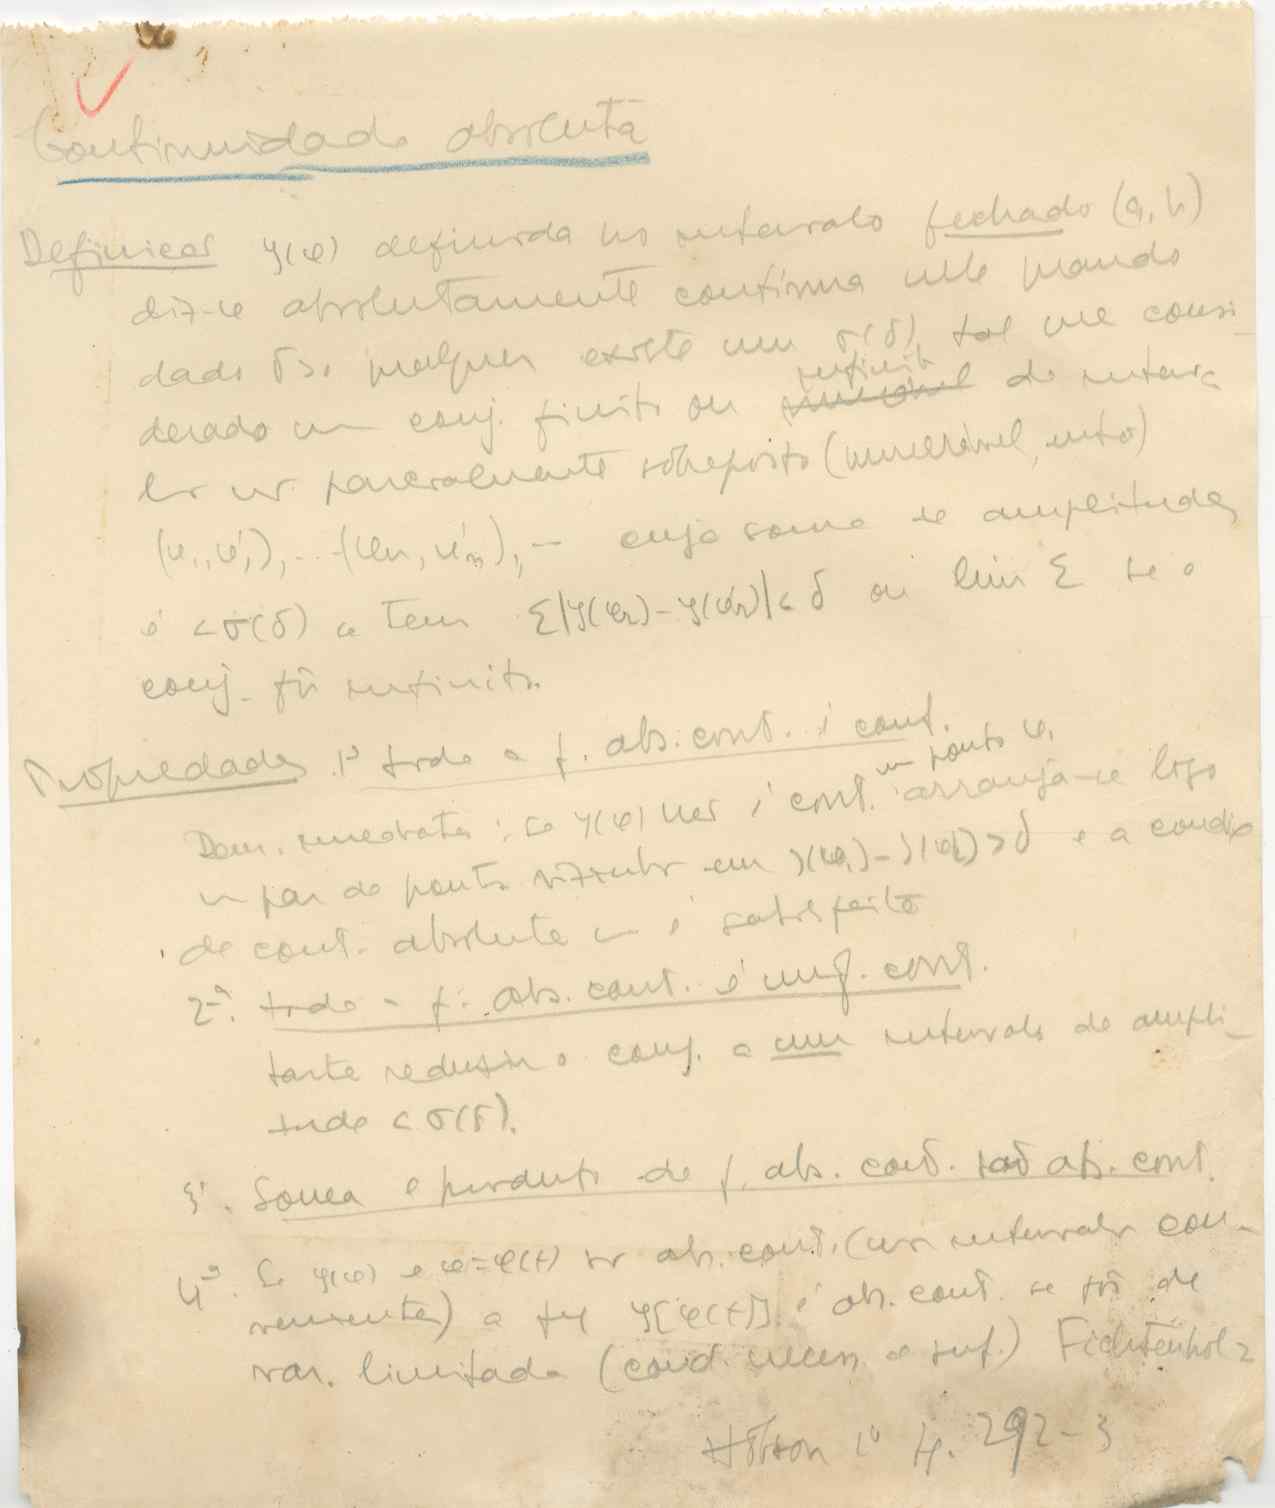 Continuidade absoluta
Definição y(φ) definida no intervalo fechado (a, b)
diz-se absolutamente contínua nele quando
dado δ>0 qualquer existe um σ(δ) tal que consi-
derado um conj. finito ou infinito de interva-
los não parcialmente sobrepostos (numerável, então)
(φ₁, φ'₁), ... (φn, φ'n), ... cuja soma de amplitudes
é < σ(δ) se tem Σ|y(φr) - y(φ'r)| < δ ou lim Σ se o
conj. fôr infinito.
Propriedades 1ª toda a f. abs. cont. é cont.
Dem. imediata: se y(φ) não é cont. no ponto φ₁ arranja-se logo
um par de pontos vizinhos em y(φ₁) - y(φ'₁) > δ e a condição
de cont. absoluta não é satisfeita
2ª. toda a f. abs. cont. é unif. cont.
basta reduzir o conj. a um intervalo de ampli-
tude < σ(δ).
3ª. Soma e produto de f. abs. cont. são abs. cont.
4ª. Se y(φ) e φ=φ(t) são abs. cont. (nos intervalos con-
venientes) a f. y[φ(t)] é abs. cont. se fôr de
var. limitada (cond. necess. e suf.) Fichtenholz
Hobson 1º p. 292-3